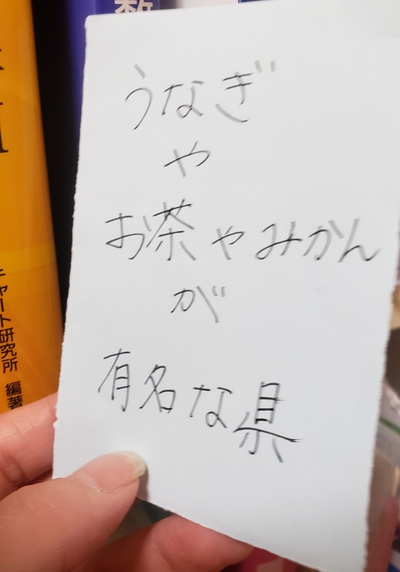 数
チャート研究所 編著
うなぎ
や
お茶やみかん
が
有名な県